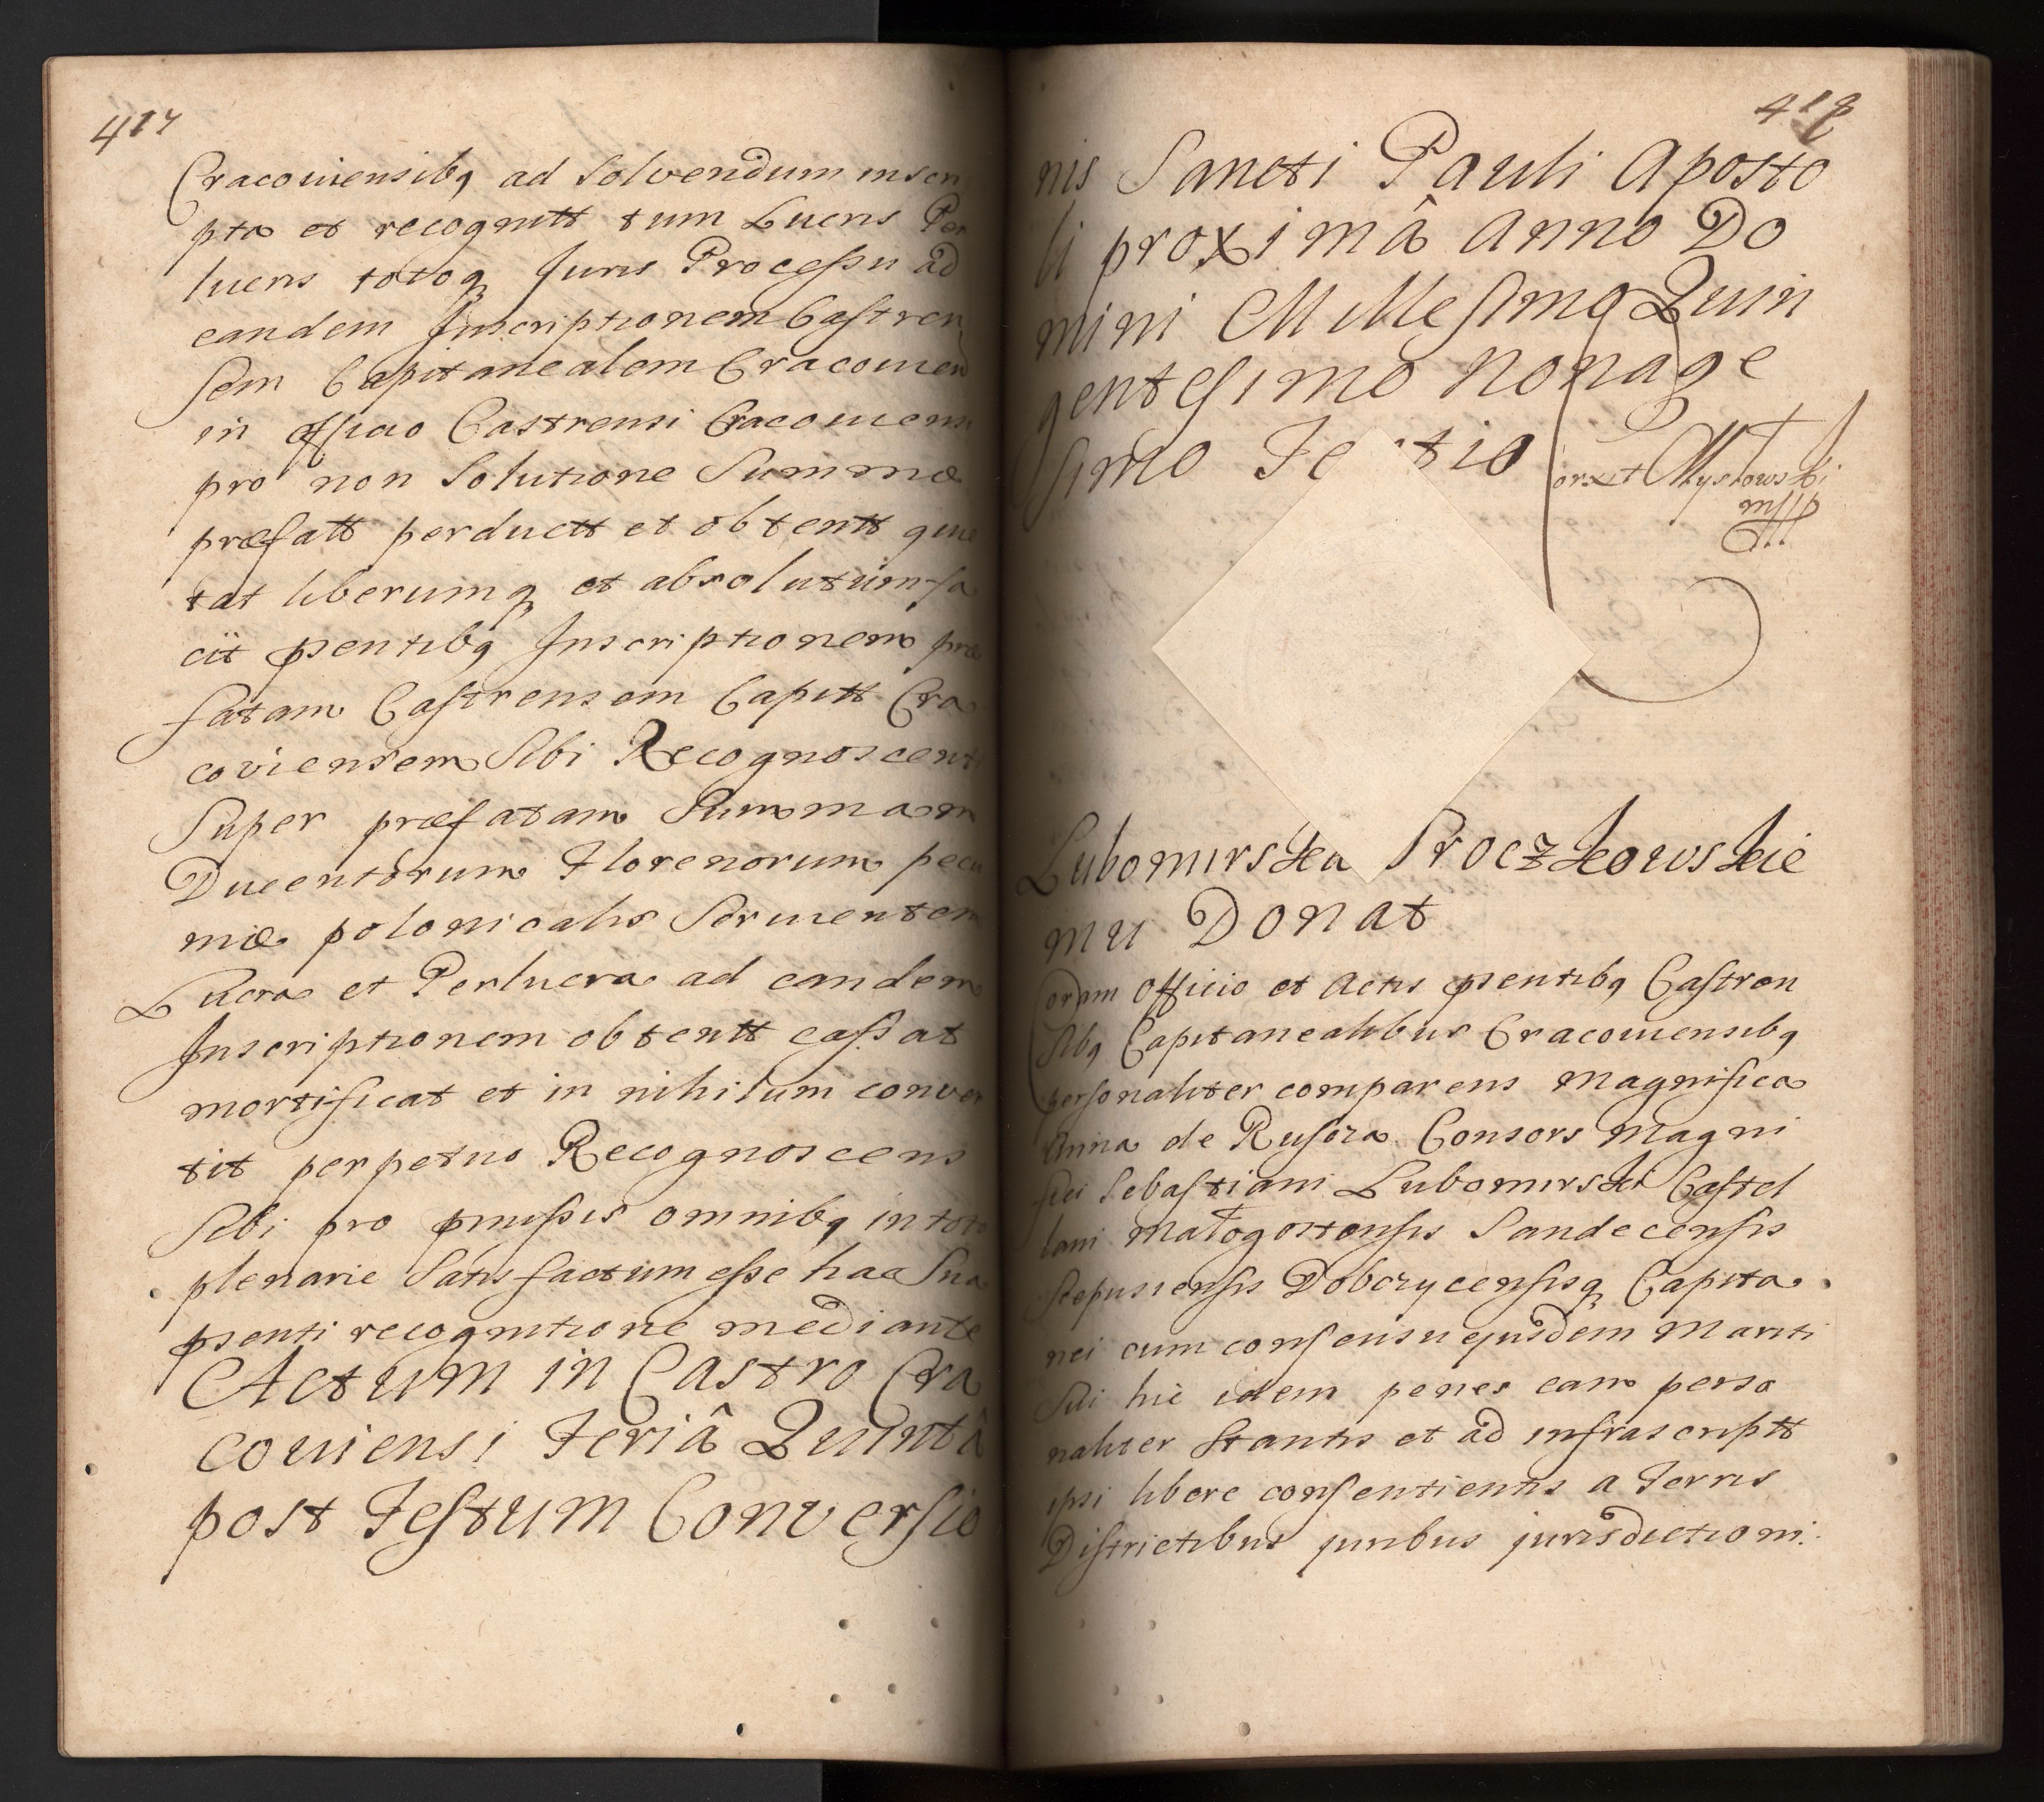 417
Cracouiensibq ad Solvendum inscri
pta et recognitt tum Lucris Per
lucris totoq Juris Processu ad
eandem Inscriptionem Castren
Sem Capitanealem Cracouien
in officio Castrensi Cracouiensi
pro non Solutione Summæ
præfatt perductt et obtentt quie
tat liberumq et absolutum fa
cit psentibq Inscriptionem præ
fatam Castrensem Capitt Cra
coviensem Sibi Recognoscenti
Super præfatam Summam
Ducentorum Florenorum pecu
niæ polonicalis Servientem
Lucra et Perlucra ad eandem
Inscriptionem obtentt cassat
mortificat et in nihilum conver
tit perpetuo Recognoscens
Sibi pro pmissis omnibq in toto
plenarie Satisfactum esse hac Sua
psenti recognitione mediante
Actum in Castro Cra
couiensi Feriâ Quintâ
post Festum Conversio
418
nis Sancti Pauli Aposto
li proximâ Anno Do
mini Millesimo Quin
gentesimo Nonage
simo Tertio
orxit Mysłowski
mpp
Lubomirska Proczkowskie
mu Donat
Coram Officio et Actis psentibq Castren
Sibq Capitanealibus Cracouiensibq
personaliter comparens Magnifica
Anna de Ruscza Consors Magni
fici Sebastiani Lubomirski Castel
lani Małogostensis Sandecensis
Scepusiensis Dobczycensisq Capita
nei cum consensu ejusdem Mariti
Sui hic idem penes eam perso
naliter Stantis et ad infrascriptt
ipsi libere consentientis a Terris
Districtibus juribus jurisdictioni.